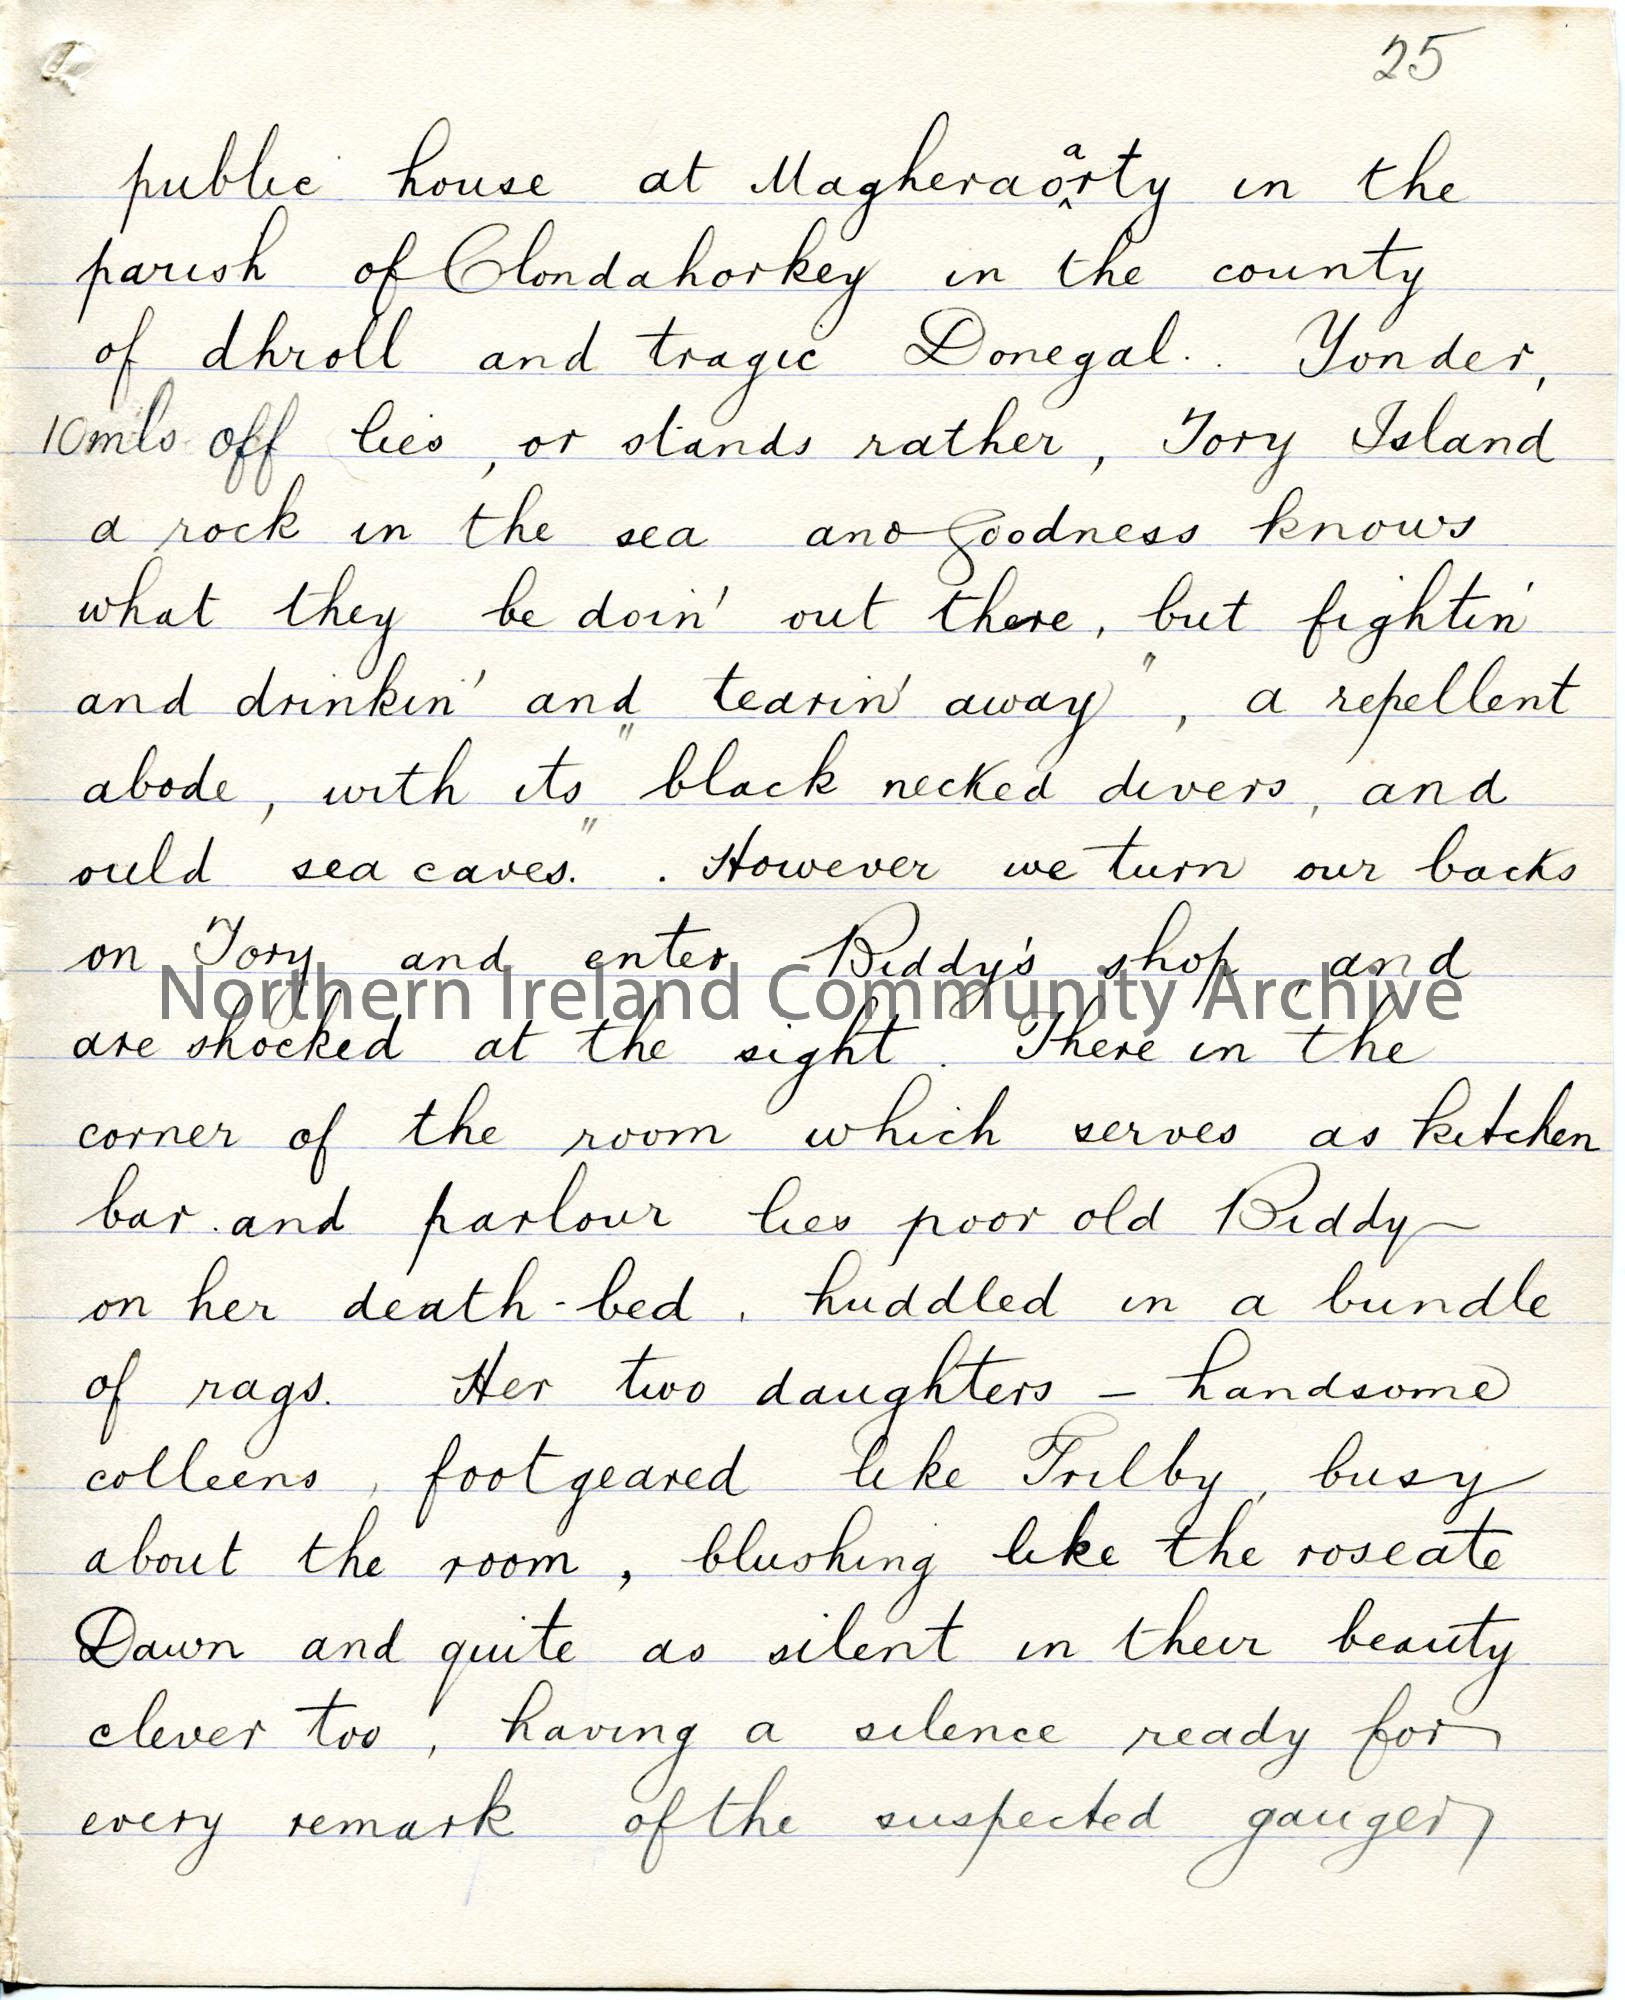 25
public house at Magheraoarty in the
parish of Clondahorkey in the county
of dhroll and tragic Donegal. Yonder,
10 mls off lies, or stands rather, Tory Island
a rock in the sea and goodness knows
what they be doin' out there, but fightin'
and drinkin' and tearin' away", a repellent
abode, with its "black necked divers, and
ould sea caves." . However we turn our backs
on Tory and enter Biddy's shop, and
Northern Ireland Community Archive
are shocked at the sight. There in the
corner of the room which serves as kitchen
bar and parlour lies poor old Biddy
on her death-bed, huddled in a bundle
of rags. Her two daughters – handsome
colleens, footgeared like Trilby, busy
about the room, blushing like the roseate
Dawn and quite as silent in their beauty
clever too, having a silence ready for
every remark of the suspected gauger,